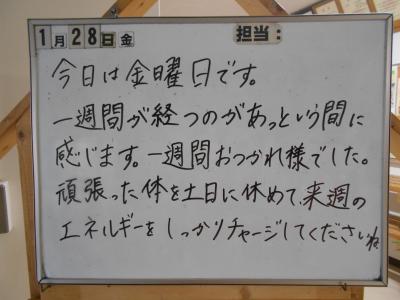 1月28日金 担当:
今日は金曜日です。
一週間が経つのがあっという間に
感じます。一週間おつかれ様でした。
頑張った体を土日に休めて、来週の
エネルギーをしっかりチャージしてくださいね